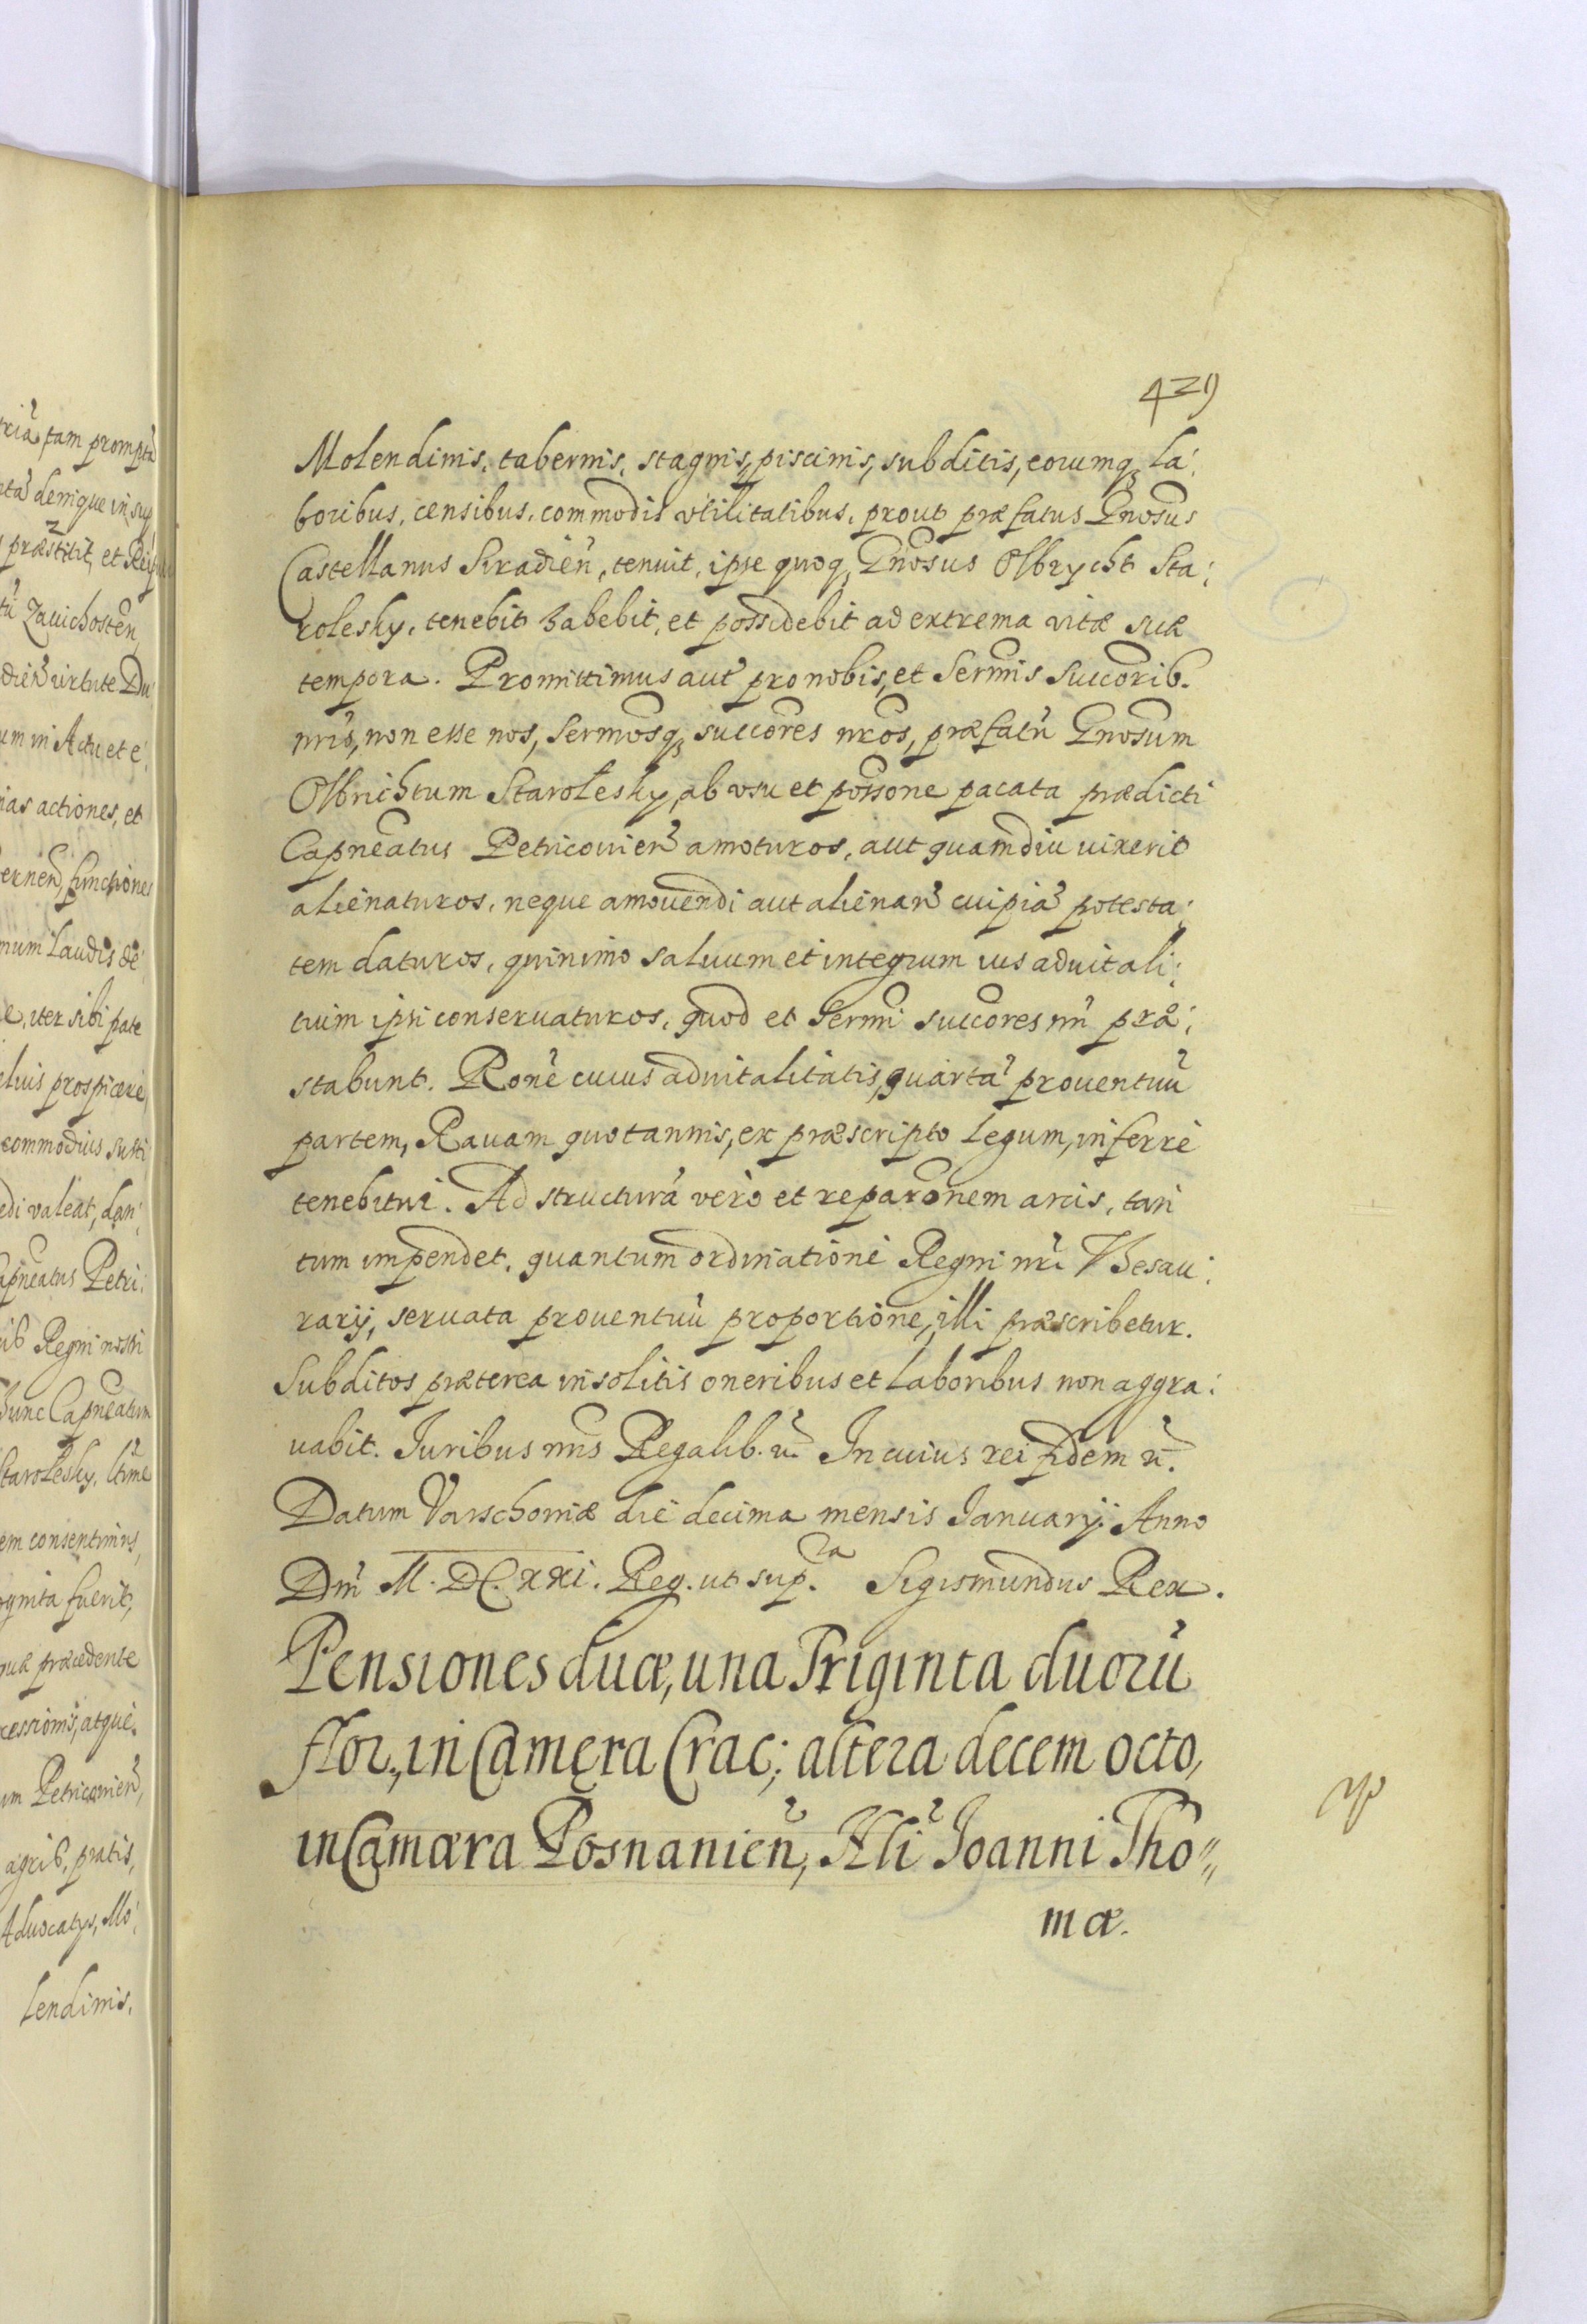 429
Molendinis, tabernis, stagnis, piscinis, subditis, eorumq, la:
boribus, censibus, commodis vtilitatibus, prout præfatus Gnosus
Castellanus Siradień, tenuit, ipse quoq, Gnosus Olbrycht Sta:
rolesky, tenebit habebit, et possidebit ad extrema vitæ suæ
tempora. Promittimus aut pro nobis, et Sermis Succorib.
nris, non esse nos, Sermosq, succores nros, præfatū Gnosum
Olbrichtum Starolesky, ab vsu et possone pacata prædicti
Capneatus Petricouień amoturos, aut quamdiu uixerit
alienaturos, neque amouendi aut alienañ cuipiā potesta:
tem daturos, quinimo saluum et integrum ius aduitali:
tium ipsi conseruaturos, quod et Sermi succores nri præ:
stabunt. Ronē cuius aduitalitatis, quartā prouentuū
partem, Rauam quotannis, ex præscripto Legum, inferre
tenebitur. Ad structurā vero et reparonem arcis, tan
tum impendet, quantum ordinatione Regni nri Thesau:
rarij, seruata prouentuū proportione, illi præscribetur.
Subditos præterea insolitis oneribus et laboribus non aggra:
uabit. Iuribus nris Regalib. &c. In cuius rei fidem &c.
Datum Varschouiæ die decima mensis Ianuarij Anno
Dni M. DC. XXI. Reg. ut sup.ra Sigismundus Rex.
Pensiones duæ, una Triginta duorū
flor., in Camera Crac; altera decem octo,
in Camæra Posnanień, Nli Ioanni Tho„
mæ.
triā, tam promptā
denique in
præstitit, et
Zauichosteń
uirtute Du
um in Actu et e
ias actiones, et
functiones
num laudis de
e, iter sibi pate
prospicere,
commodius susti
edi valeat, dan:
apneatus Petri:
ib Regni nostri
hunc Capneatum
Starolesky,
em consentimus,
ognita fuerit,
præcedente
cessionis, atque
um Petricouień,
agrib, pratis,
Aduocatys, Mo:
lendinis,